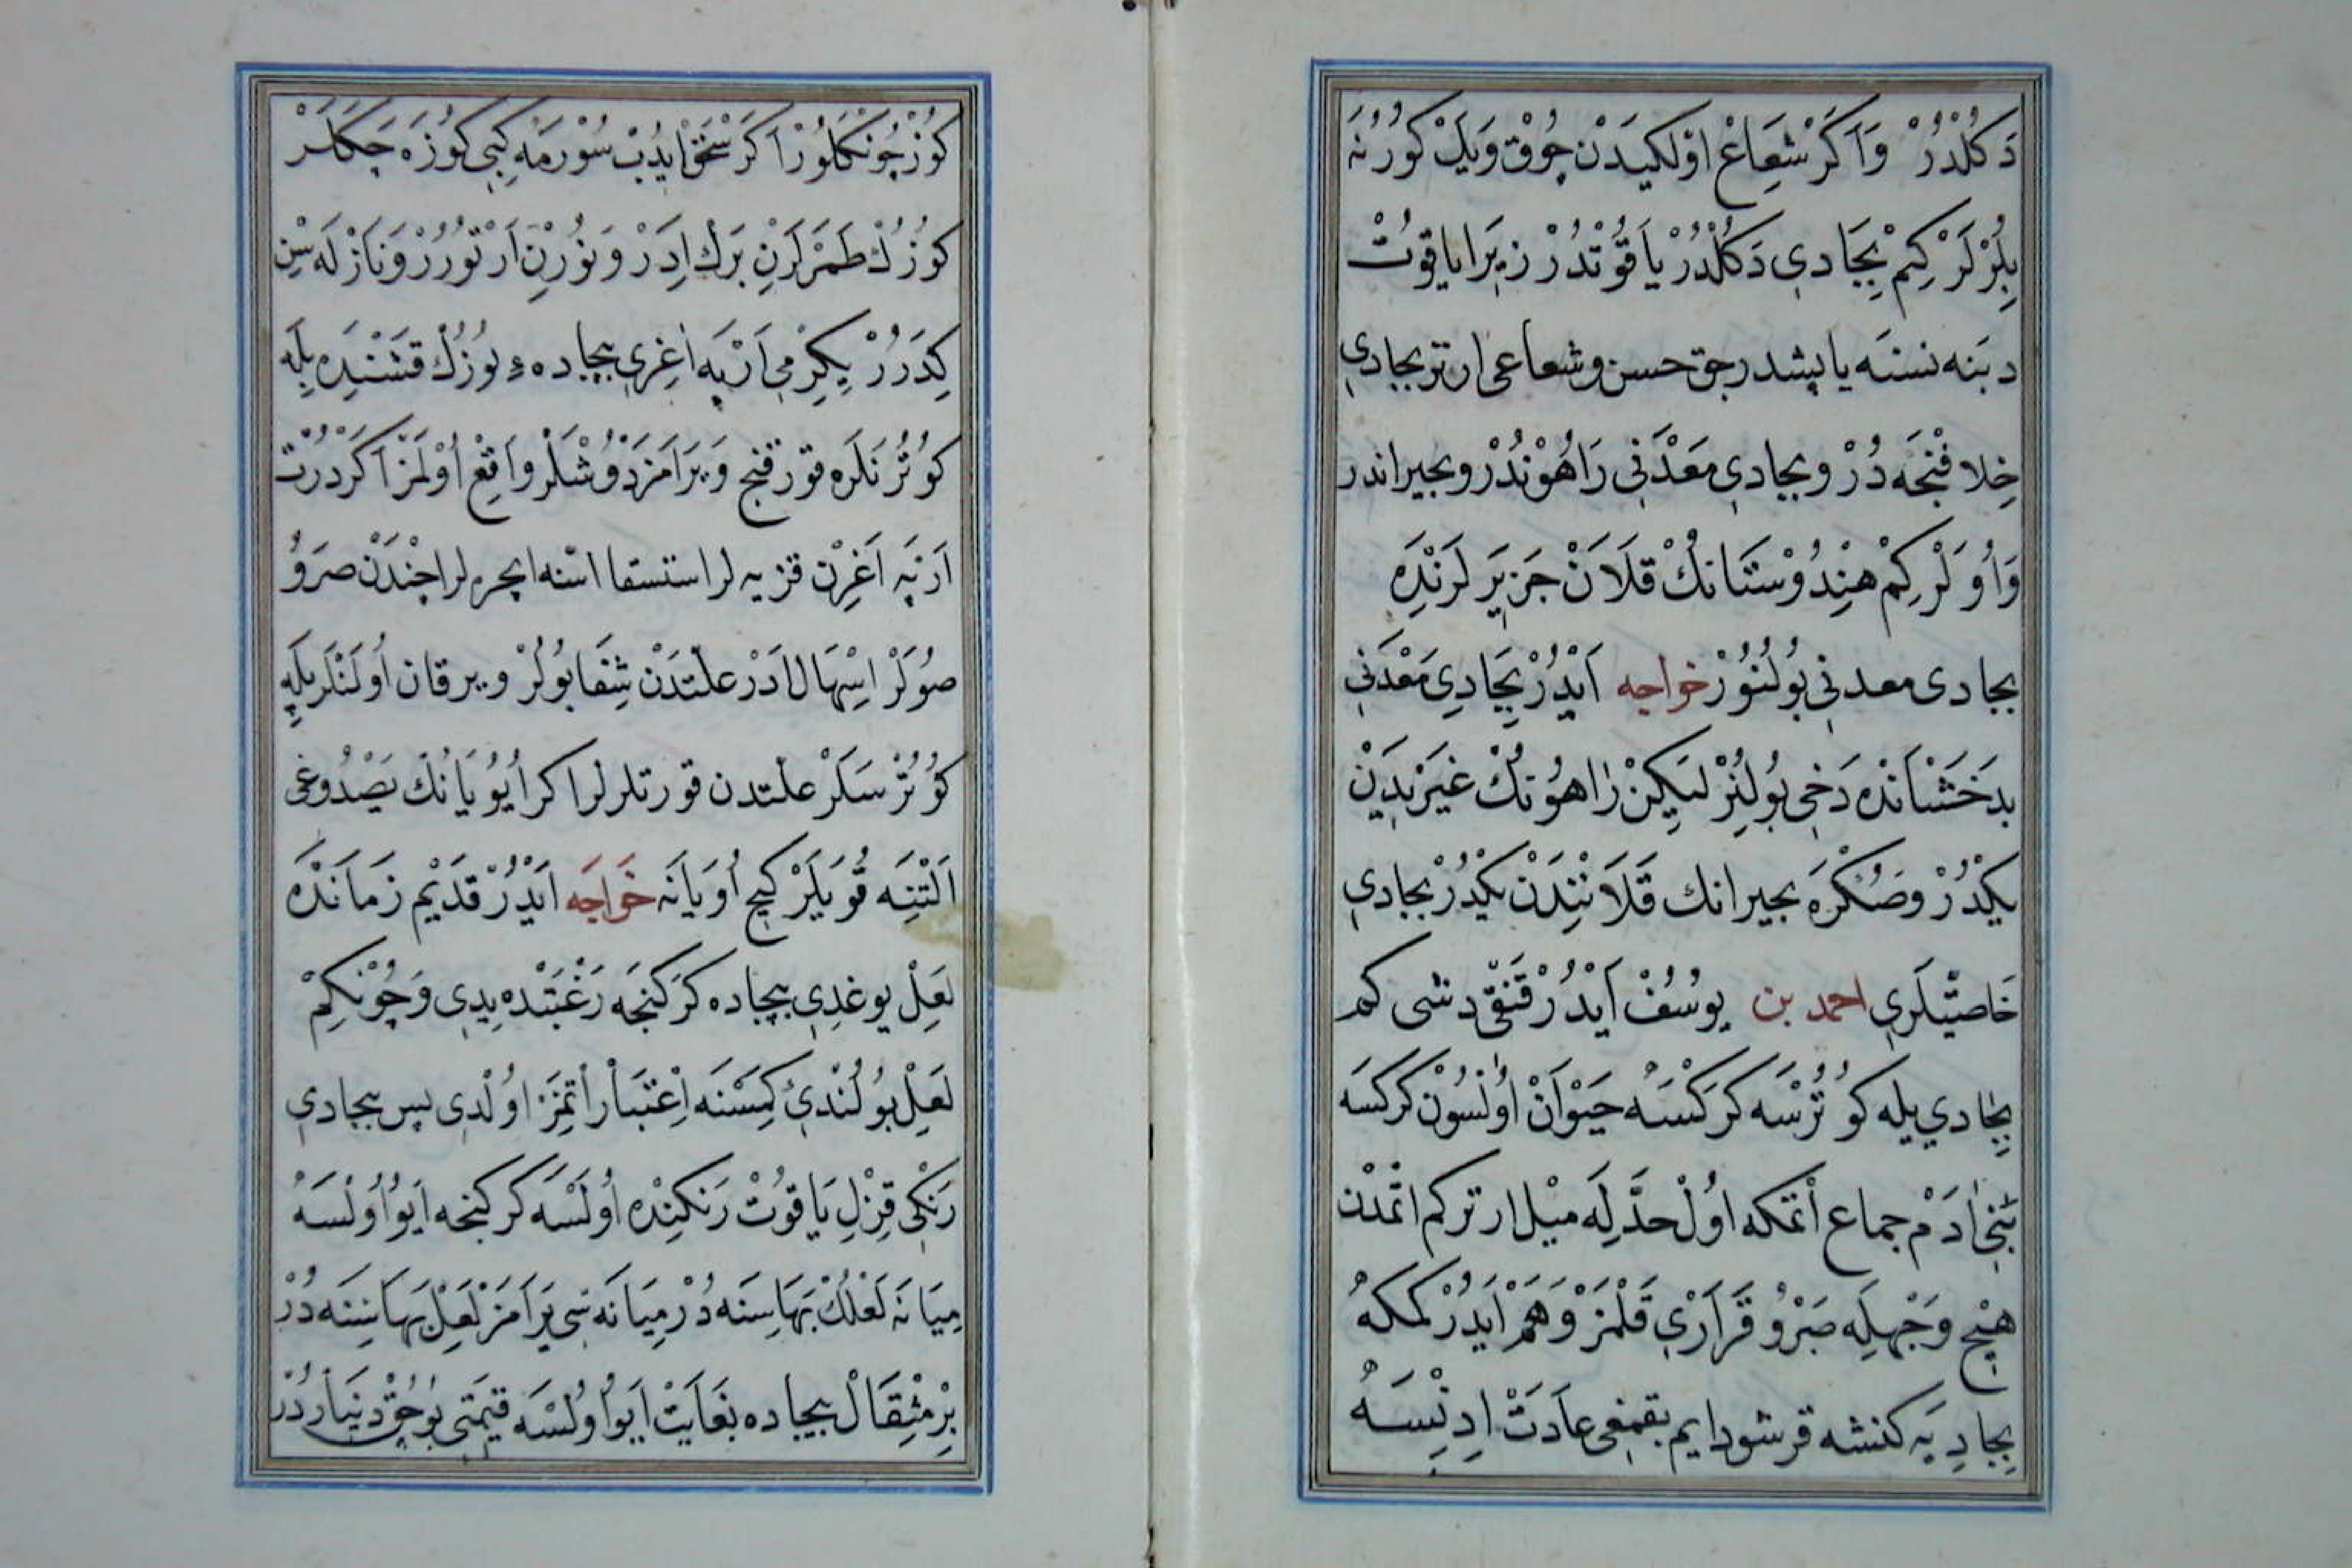 دَكُلْدُرْ وَاَكَرْ شُعَاعْ اوْلكيدَنْ چُوقْ وَيَكْ كورُنَه
بِلُرْلَرْ كِمْ بِجَادِي دَكُلْدُرْ يَاقُوتْدُرْ زِيرَا ياقوتْ
دبنه نسنه ياپشدرجق حسن وشعاعى ارتر بجادي
خِلافِنْجَه دُرْ وبجادي مَعْدَنِي رَاهُونْدُرْ وبجيراندر
وَاُولَرْ كِمْ هِنْدُوسْتَانُكْ قَلَانْ جَزِيرَلَرِنْدَه
بجادى معدنى بُولُنُورْ خواجه اَيْدُرْ بِجَادِي مَعْدَنِي
بدَخَشَانْدَه دَخِي بُولِنُرْ لَيكِنْ رَاهُونُكْ غَيْرِيْدَنْ
يكْدُرْ وصُكْرَه بجيرانك قَلَانِنْدَنْ يكْدُرْ بجادي
خَاصِيَّتلَرِي احمد بن يوسُفْ اَيْدُرْ قَنْقِي دشى كم
بِجَادي يله كوتُرْسَه كَرَكْسَه حَيْوَانْ اُولْسُونْ كركسَه
بَنِي اٰدَمْ جماع اَتْمَكه اُولْ حَدَّلَه مَيْل ارتر كم اتْمَدْن
هيچ وَجْهِلَه صَبْرُو قَرَارِي قَلْمَزْ وَهَمْ اَيْدُرْ كمكه
بِجَادِيَه كنشه قرشو دايم بقمغى عادَتْ اِدِنْسَه
كوُزْ چُونْكَلُورْ اَكَرْ سَحْقْ ايدُبْ سُورمَه كِبِي كوُزَه چَكَلَرْ
كوُزُكْ طَمَرْلَرِنِ بَرْك اِدَرْ وَنوُرْنِ اَرْتوُرُرْ وَنَازْلَه سْنِ
كِدَرُرْ يِكِرْمِي اَرْپَه اغِرِي بيجاده ءِ يوُزُكْ قَشَنْدِه بِلَه
كوُتُرَنلَرَه قورقنج وَيَرَامَزْ دُوشْلَرْ وَاقِعْ اُولْمَزْ اَكَرْ دُرْت
اَرْپَه اَغِرِنْ قزيه لر استسقا اسنه ايچره لر اچِنْدَنْ صَرُو
صُولَرْ اِسْهَال اَدَرْ علّتدَنْ شِفَا بُولُرْ ويرقان اُولَنْلَر بِلَه
كوُتُرْسَكَرْ علّتدن قورتلرلر اكر اُيُويَانُكْ يَصْدُوغى
اَلْتِنَه قُويَلَرْ كيچ اُويَانَه خَواجَه اَيْدُرْ قَدِيْم زَمَانْدَه
لَعِلْ يوغدِي بيجاده كَرَكنجَه رَغْبَتْدَه يِدِي وَچُونْكِمْ
لَعِلْ بُولُنْدِي كِمْسَنَه اِعْتِبَار اَتْمَز اوُلْدِى پس بيجادي
رَنْكِي قِزْلِ يَاقوُتْ رَنكِنْدَه اُولْسَه كركنجه اَيُو اُولْسَه
مِيَانَه لَعْلُكْ بَهَاسِنَه دُرْ مِيَانَه سَي يَرَامَزْ لَعِلْ بَهَاسِنَه دُرْ
بِرْ مِثْقَالْ بيجاده بغَايَتْ اَيوُ اوُلْسَه قِيْمَتِي بوُچُقْ دِيْنَارْدُرْ